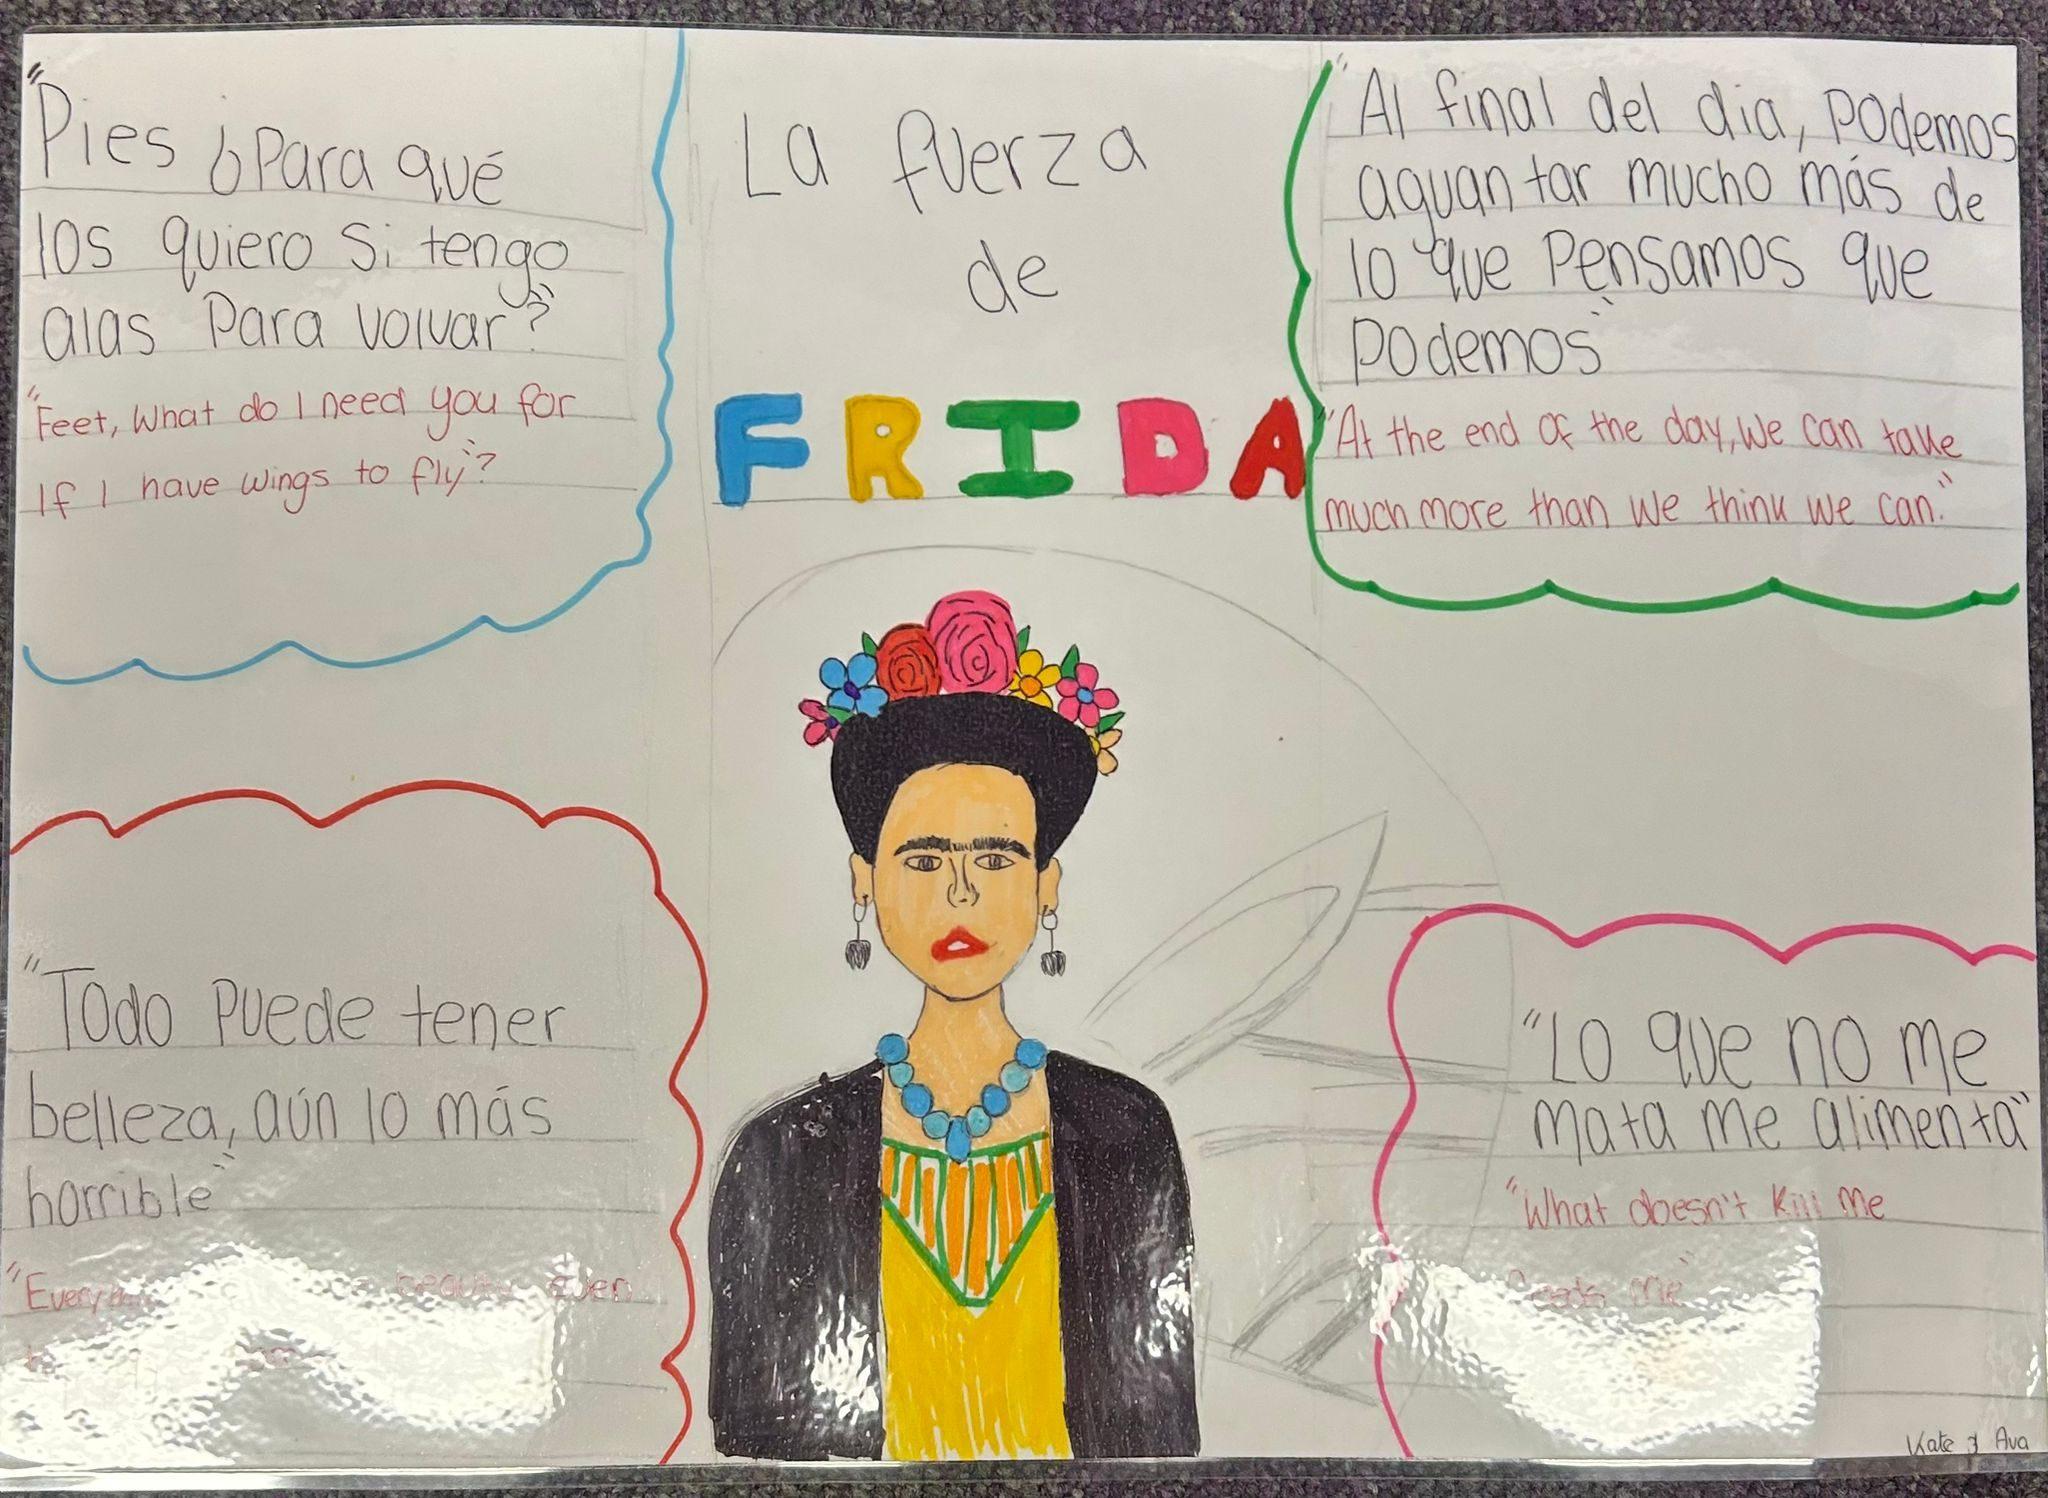 "Pies ¿Para qué
los quiero si tengo
alas Para volvar?"
"Feet, What do I need you for
If I have wings to fly"?
La fuerza
de
FRIDA
"Al final del dia, podemos
aguantar mucho más de
lo que Pensamos que
podemos"
"At the end of the day, We can take
much more than We think We can."
"Todo puede tener
belleza, aún lo más
horrible"
beauty even
"Lo que no me
mata me alimenta"
"What doesn't Kill Me
Me"
Kate & Ava